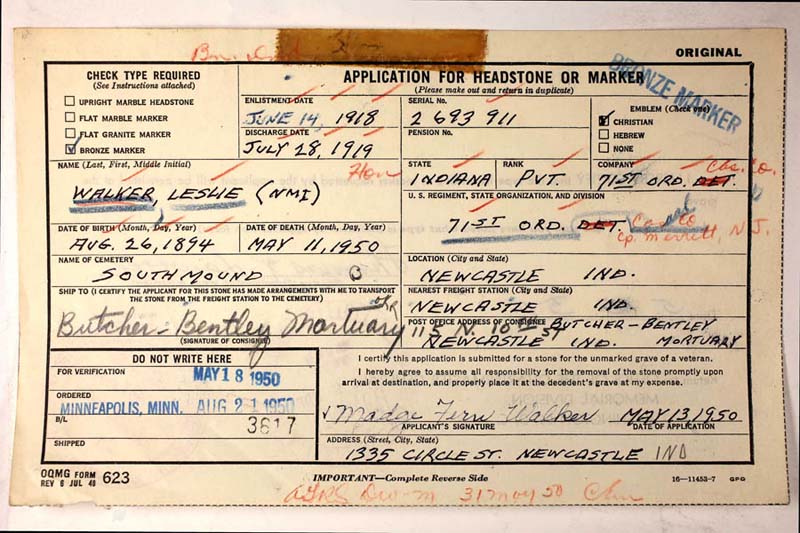 ORIGINAL
CHECK TYPE REQUIRED
(See Instructions attached)
UPRIGHT MARBLE HEADSTONE
FLAT MARBLE MARKER
FLAT GRANITE MARKER
BRONZE MARKER
APPLICATION FOR HEADSTONE OR MARKER
(Please make out and return in duplicate)
BRONZE MARKER
ENLISTMENT DATE
JUNE 14, 1918
DISCHARGE DATE
JULY 28, 1919
SERIAL No.
2 693 911
PENSION No.
EMBLEM (Check one)
CHRISTIAN
HEBREW
NONE
NAME (Last, First, Middle Initial)
Hon
WALKER, LESLIE (NMI)
STATE
INDIANA
RANK
PVT.
COMPANY
71ST ORD. DET.
U. S. REGIMENT, STATE ORGANIZATION, AND DIVISION
71ST ORD. DET.
Cp. Merritt, N. J.
DATE OF BIRTH (Month, Day, Year)
AUG. 26, 1894
DATE OF DEATH (Month, Day, Year)
MAY 11, 1950
NAME OF CEMETERY
SOUTH MOUND
LOCATION (City and State)
NEWCASTLE IND.
SHIP TO (I CERTIFY THE APPLICANT FOR THIS STONE HAS MADE ARRANGEMENTS WITH ME TO TRANSPORT
THE STONE FROM THE FREIGHT STATION TO THE CEMETERY)
Butcher-Bentley Mortuary
(SIGNATURE OF CONSIGNEE)
NEAREST FREIGHT STATION (City and State)
NEWCASTLE IND.
POST OFFICE ADDRESS OF CONSIGNEE
115 N. 16th ST BUTCHER-BENTLEY
NEWCASTLE IND. MORTUARY
DO NOT WRITE HERE
FOR VERIFICATION
MAY 18 1950
ORDERED
MINNEAPOLIS, MINN. AUG 21 1950
B/L
3617
SHIPPED
I certify this application is submitted for a stone for the unmarked grave of a veteran.
I hereby agree to assume all responsibility for the removal of the stone promptly upon
arrival at destination, and properly place it at the decedent's grave at my expense.
Madge Fern Walker MAY 13, 1950
APPLICANT'S SIGNATURE DATE OF APPLICATION
ADDRESS (Street, City, State)
1335 CIRCLE ST. NEWCASTLE IND
OQMG FORM
REV 6 JUL 48 623
IMPORTANT—Complete Reverse Side
16—11453-7 GPO
31 May 50